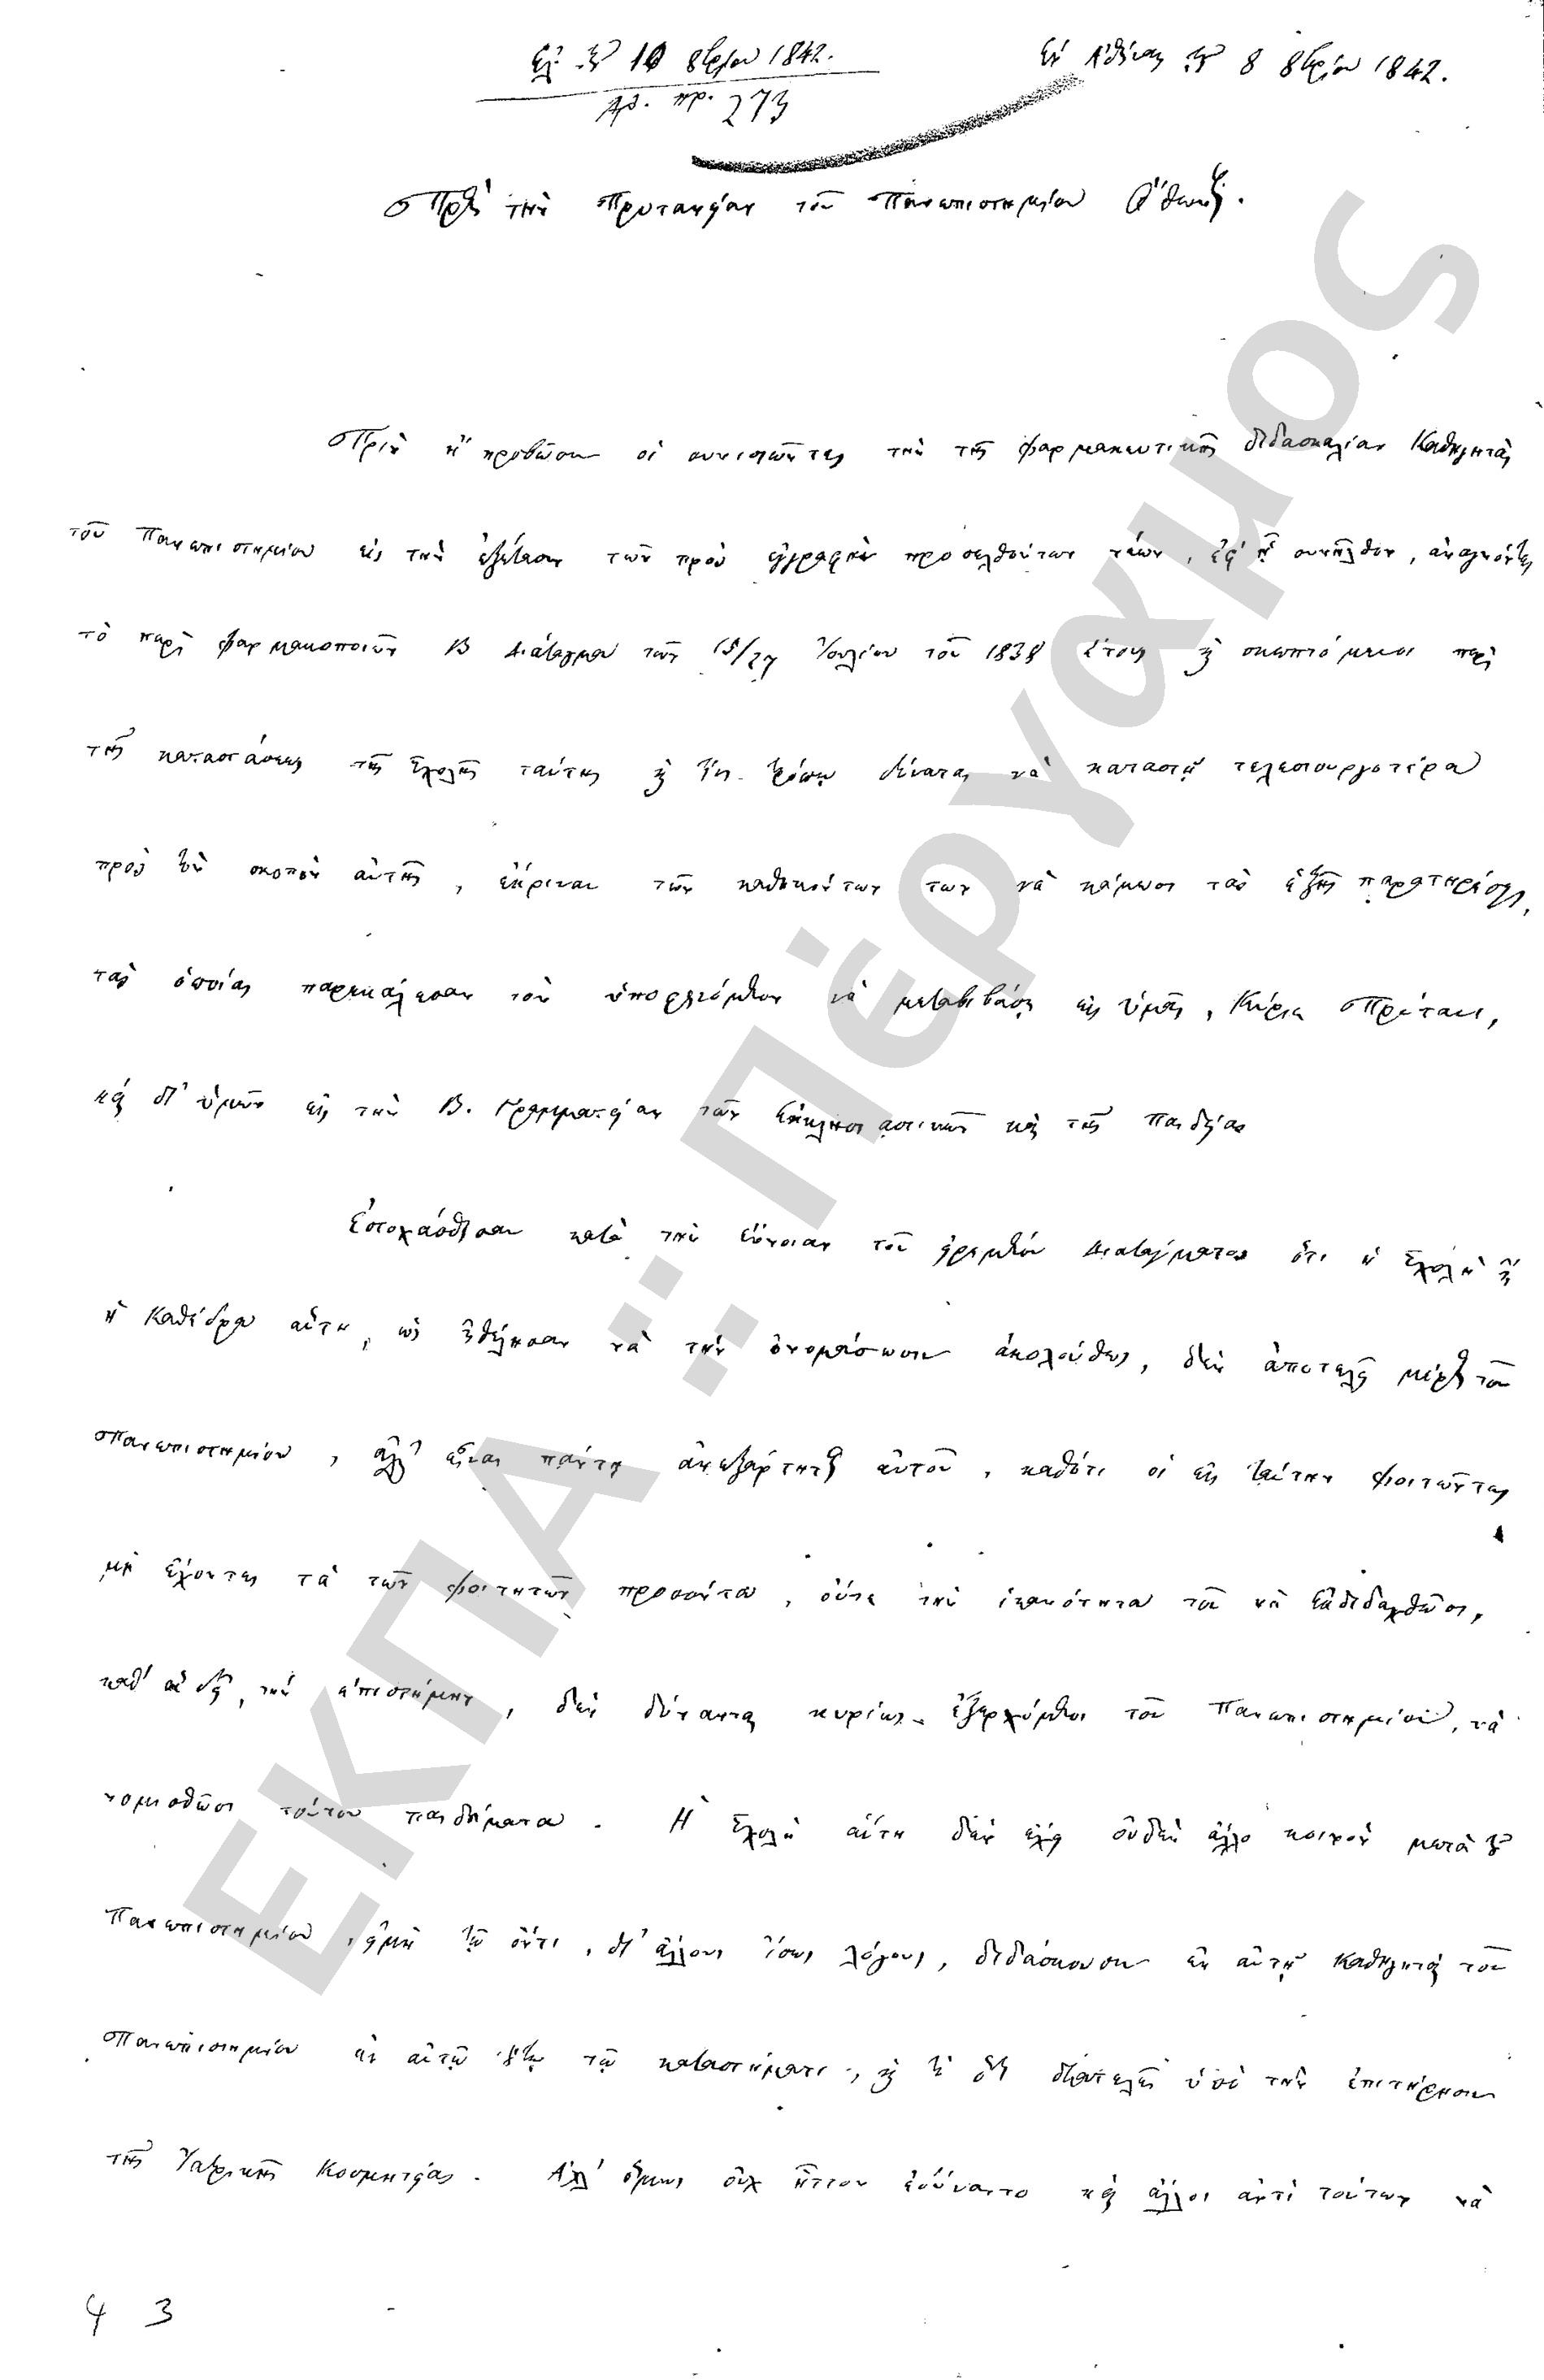 Ἐλ. τῇ 10 8βρίου 1842.
Ἀρ. πρ. 273
Ἐν Ἀθήναις τῇ 8 8βρίου 1842.
Πρὸς τὴν Πρυτανείαν τοῦ Πανεπιστημίου Ὄθωνος.
Πρὶν ἢ προβῶσιν οἱ συνιστῶντες τὴν τῆς φαρμακευτικῆς διδασκαλίαν Καθηγηταὶ
τοῦ Πανεπιστημίου εἰς τὴν ἐξέτασιν τῶν πρὸς ἐγγραφὴν προσελθόντων νέων, ἐφ' ᾗ συνῆλθον, ἀναγνόντες
τὸ περὶ φαρμακοποιῶν Β Διάταγμα τῶν 15/27 Ἰουλίου τοῦ 1838 ἔτους καὶ σκεπτόμενοι περὶ
τῆς καταστάσεως τῆς Σχολῆς ταύτης καὶ τίνι τρόπῳ δύναται νὰ καταστῇ τελεσιουργοτέρα
πρὸς τὸν σκοπὸν αὐτῆς, ἔκριναν τῶν καθηκόντων των νὰ κάμωσι τὰς ἑξῆς παρατηρήσεις,
τὰς ὁποίας παρεκάλεσαν τὸν ὑποφαινόμενον νὰ μεταβιβάσῃ εἰς ὑμᾶς, Κύριε Πρύτανι,
καὶ δι' ὑμῶν εἰς τὴν Β. Γραμματείαν τῶν Ἐκκλησιαστικῶν καὶ τῆς Παιδείας
Ἐστοχάσθησαν κατὰ τὴν ἔννοιαν τοῦ εἰρημένου Διατάγματος ὅτι ἡ Σχολὴ ἢ
ἡ Καθέδρα αὕτη, ὡς ἠθέλησαν νὰ τὴν ὀνομάσωσιν ἀκολούθως, δὲν ἀποτελεῖ μέρος τοῦ
Πανεπιστημίου, ἀλλ' εἶναι πάντη ἀνεξάρτητος αὐτοῦ, καθότι οἱ εἰς ταύτην φοιτῶντες
μὴ ἔχοντες τὰ τῶν φοιτητῶν προσόντα, οὔτε τὴν ἱκανότητα τοῦ νὰ ἐκδιδαχθῶσι,
καθ' ἃ δεῖ, τὴν ἐπιστήμην, δὲν δύνανται κυρίως ἐξερχόμενοι τοῦ Πανεπιστημίου, νὰ
νομισθῶσι τούτου παιδεύματα. Ἡ Σχολὴ αὕτη δὲν ἔχει οὐδὲν ἄλλο κοινὸν μετὰ τοῦ
Πανεπιστημίου, εἰμὴ τῷ ὄντι, δι' ἄλλους ἴσως λόγους, διδάσκουσιν ἐν αὐτῇ Καθηγηταὶ τοῦ
Πανεπιστημίου ἐν αὐτῷ τούτῳ τῷ καταστήματι, καὶ διατελεῖ ὑπὸ τὴν ἐπιτήρησιν
τῆς Ἰατρικῆς Κοσμητείας. Ἀλλ' ὅμως οὐχ ἧττον ἐδύναντο καὶ ἄλλοι ἀντὶ τούτων νὰ
43
ΕΚΠΑ :: Πέργαμος